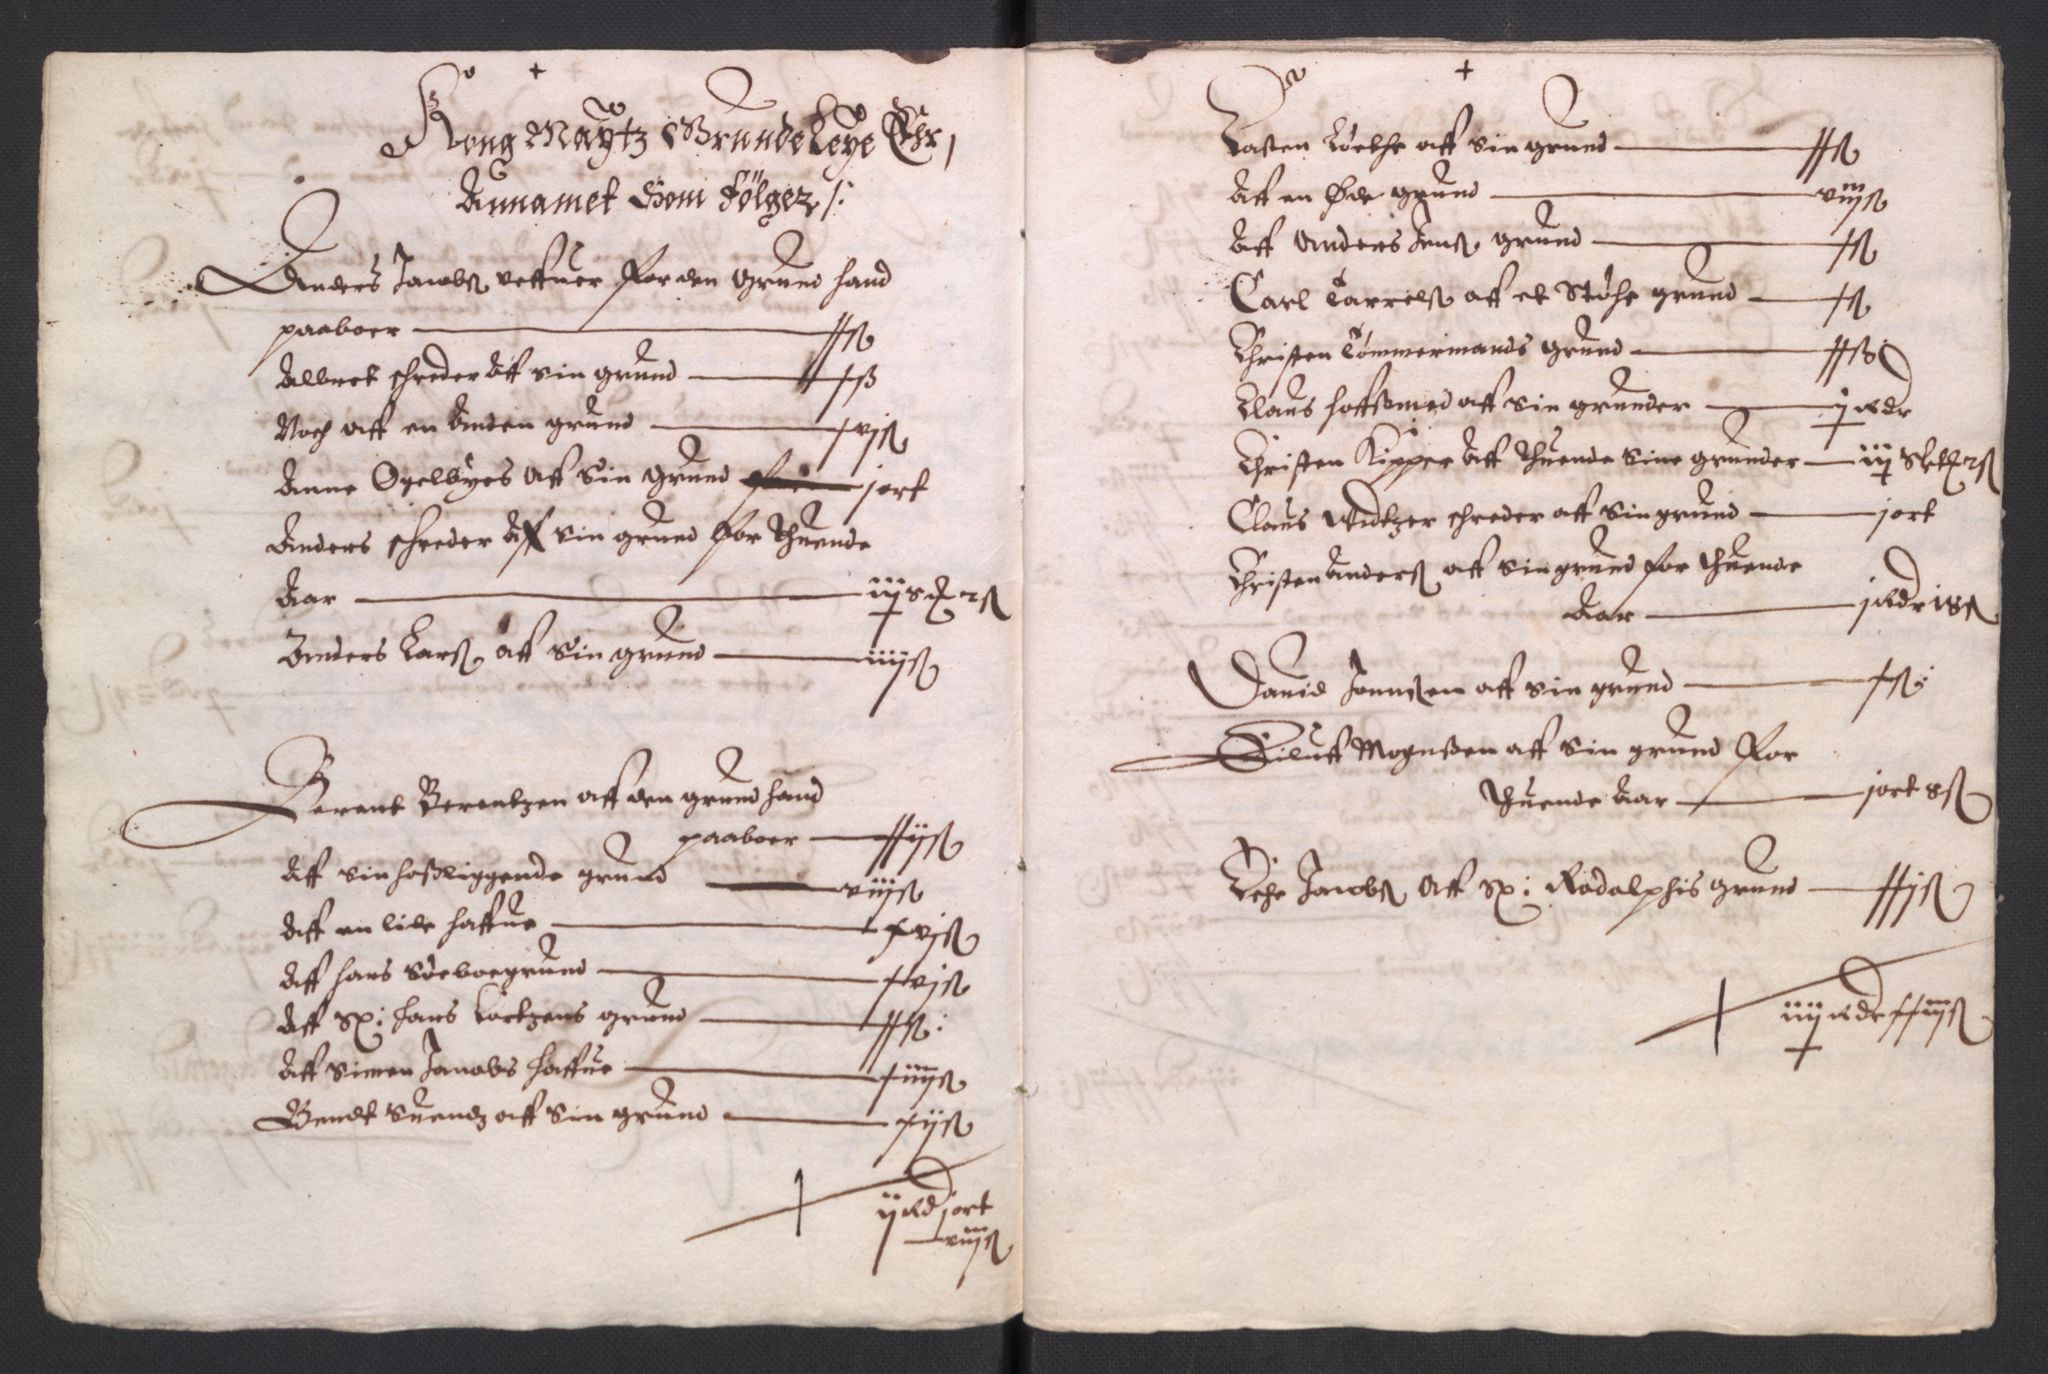 Kong Maÿtz Grunde Leÿe Ehr
Annamet Som følger /:
Anders Jacobß veffuer for den Grund hand
paaboer xxß
Albret schreder Aff sin grund xß
Noch aff en Anden grund xvjß
Anne Ogelbyes Aff Sin Grund j ort
Anders schreder Aff sin grund for Thuende
Aar iijs 2ß
Anders Larß aff Sin grund iiijß
Berent Berentzen aff den grund hand
paaboer xxijß
Aff sin hoßliggende grund viijß
Aff en lide haffue xvjß
Aff hans Søeboe grund xvjß
Aff Sx: hans Lortzens grund xxß:
Aff Simen Jacobs haffue xiiijß
Bendt Suendz aff Sin grund xijß
ij Rd j ort
viijß
Casten aff sin grund xxß
Aff en Øde grund viijß
Aff Anders Jenß grund xß
Carl Carrelß aff et støche grund xß
Christen Tømmermands grund xxß
Claus hoffsmed aff sin grunder ij Rdr
Christen Kipper Aff Thuende sine grunder iij slet 2ß
Claus schreder aff sin grund j ort
Christen Anderß aff sin grund for Thuende
Aar j Rdr 18ß
Dauid Jennsen aff sin grund xß:
Eiluff Mogenßen aff sin grund for
Thuende Aar j ort 8ß
Jacobß Aff Sx: Rodolphis grund xxijß
iiij Rdr xxiijß